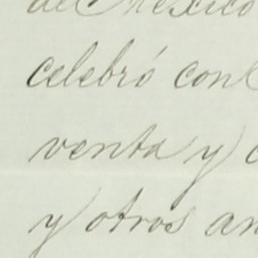 de México
celebró con
venta y
y otros